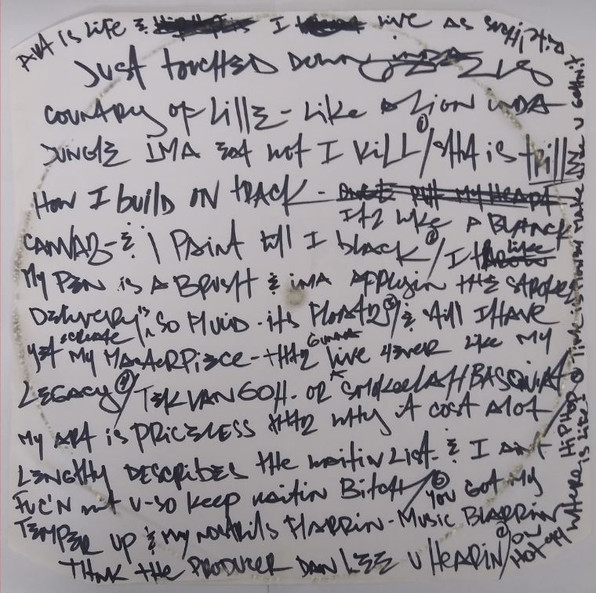 ART IS LIFE & I LIVE AS SCRIPTED
JUST TOUCHED DOWN
COUNTRY OF LILLE - LIKE A LION INDA
JUNGLE IMA EAT WUT I KILL / SHH IS TRILL
HOW I BUILD ON TRACK -
ITZ LIKE A BLANCK
CANVAZ - & I PAINT TILL I BLACK / I
MY PEN IS A BRUSH & IMA APPLYIN THE STROKES
DELIVERY'S SO FLUID - ITS FLOATZ / & STILL I HAVE
YET CREATE MY MASTERPIECE - THTZ GUNNA LIVE 4EVER LIKE MY
LEGACY / TEK VAN GOH - OR SMOKEELAH BASQUIAT
MY ART IS PRICELESS THTZ WHY IT COST ALOT
LENGTHY DESCRIBES THE WAITIN LIST - & I AIN'T
FUC'N WIT U - SO KEEP WAITIN BITCH / YOU GOT MY
TEMPER UP & MY NOSTRILS FLARRIN - MUSIC BLARRIN
THNK THE PRODUCER DAN LEE U HEARIN /
WHERE HIPHOP IS LIFE !